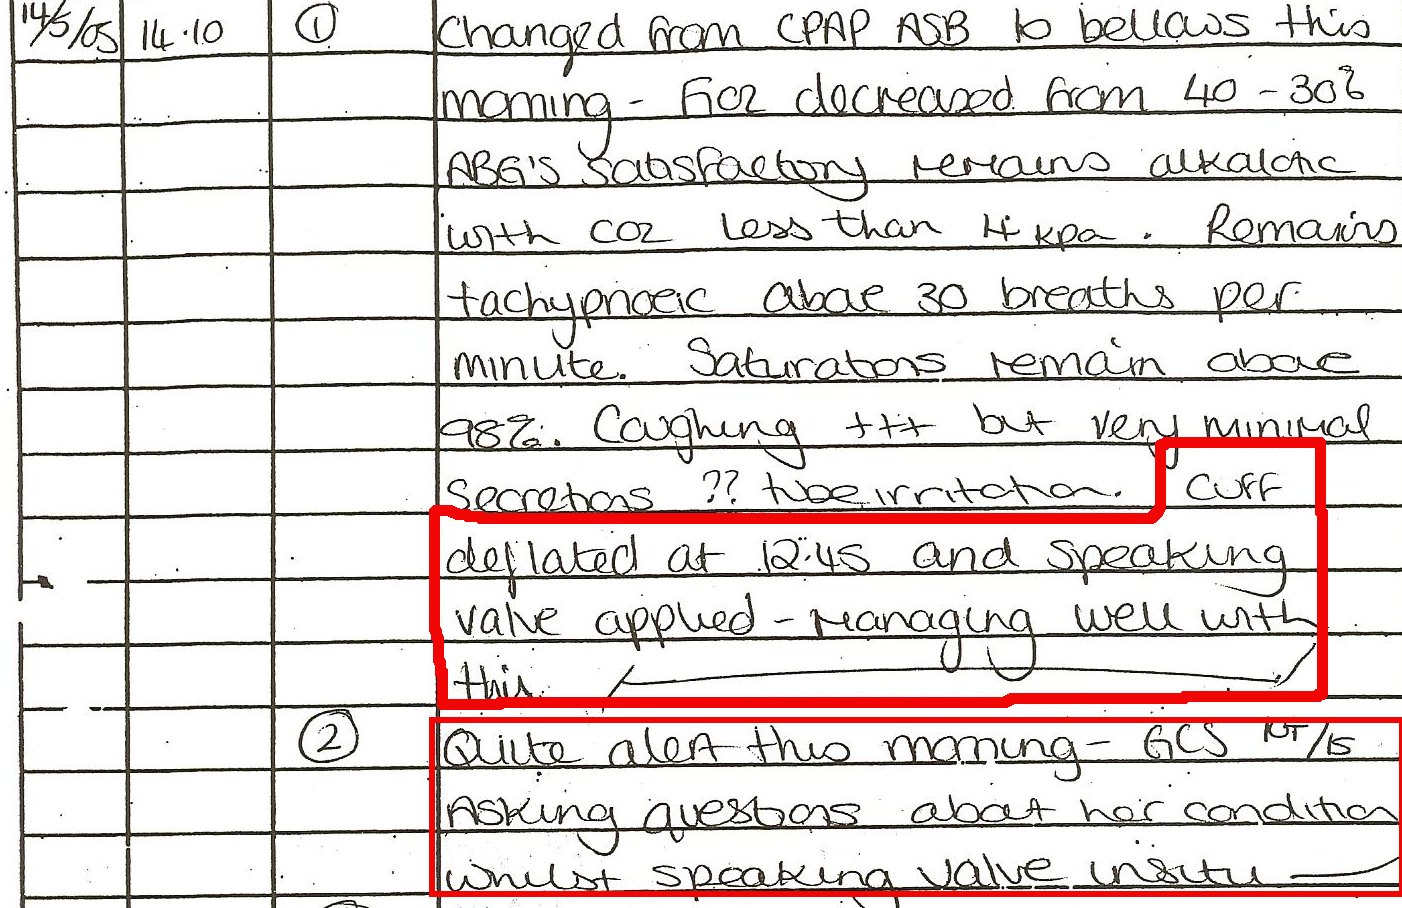 14/5/05 14.10 ① Changed from CPAP ASB to bellows this
morning - FiO2 decreased from 40 - 30%
ABG's satisfactory remains alkalotic
with CO2 less than 4 kpa. Remains
tachypnoeic above 30 breaths per
minute. Saturations remain above
98%. Coughing +++ but very minimal
secretions ?? tube irritation. Cuff
deflated at 12:45 and speaking
valve applied - Managing well with
this
② Quite alert this morning - GCS 10T/15
Asking questions about her condition
whilst speaking valve insitu